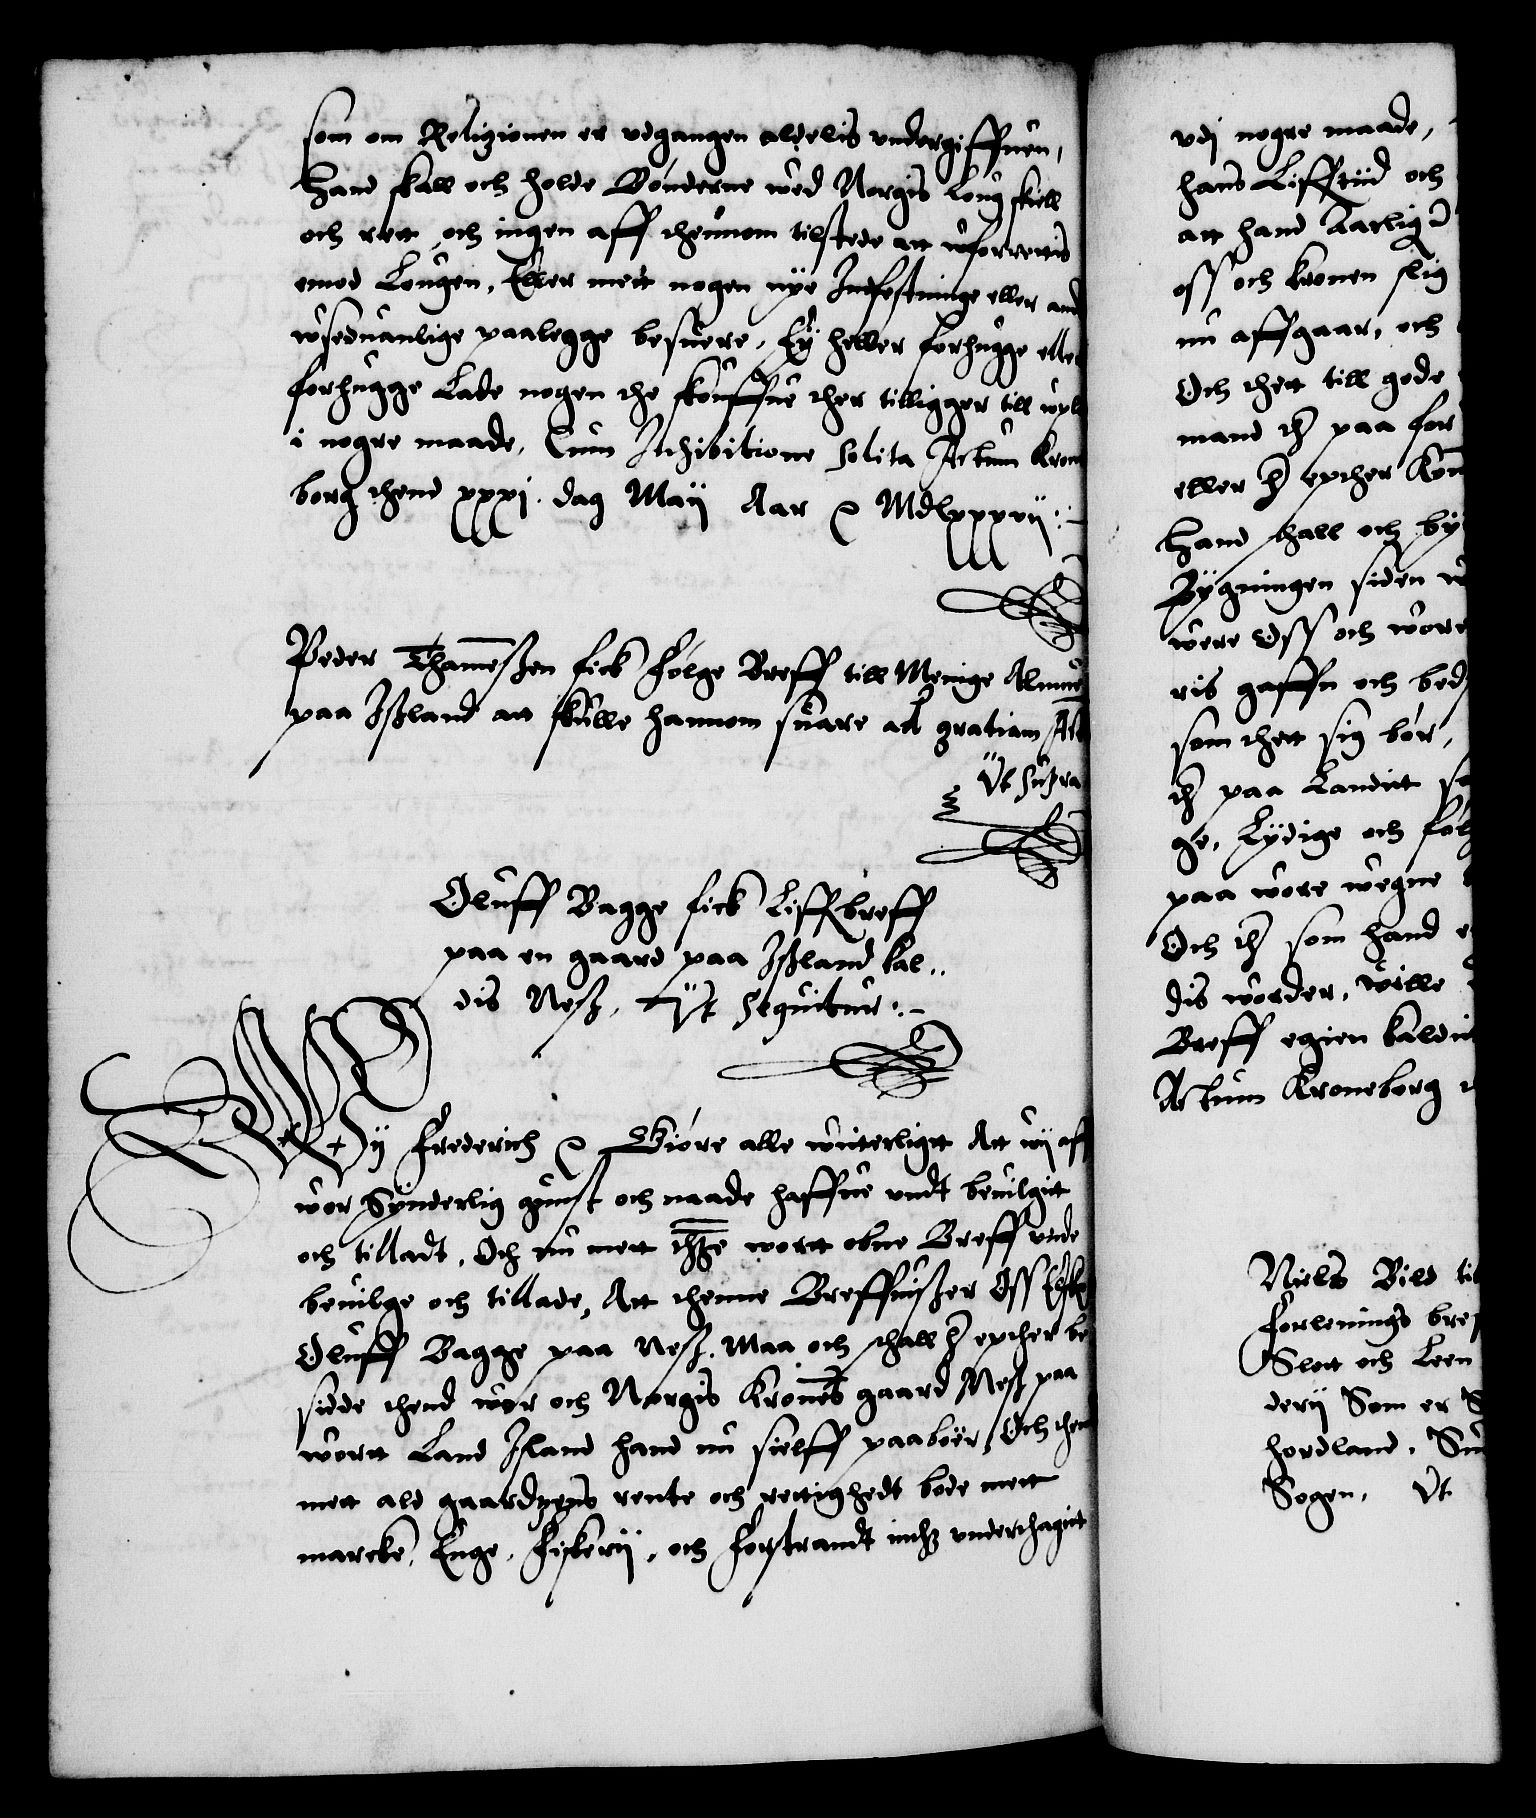 som om Religionen er vdgangen aldelis vndergiffuen,
Hand skall och holde Bønderne wed Norgis Loug skiell
och rett, och ingen aff thennom tilstede att wforrettis
emod Lougen, Eller mett nogen nye Indfestninge eller and
wseduanlige paalegge besuere, Ey heller forhugge elle
forhugge Lade nogen the skouffue ther tilligger till wpl
i nogre maade, Cum Inhibitione solita Actum Kron
borg thend xxxj. dag Maij Aar &c Mdlxxxvij:-
Peder Thamessen fick følge Breff till Menige Almue
paa Island att skulle hannom suare ad gratiam Act
Vt supra
Oluff Bagge fick Liffsbreff
paa en gaard paa Island kal..
dis Ness, Vt sequitur:-
Wy Frederich &c Giøre alle witterligtt Att wij aff
wor Synderlig gunst och naade haffue vndt beuilgitt
och tilladt, Och nu mett thette wortt obne Breff vnde
beuilge och tillade, Att thenne Breffuisser Oss Elske
Oluff Bagge paa Ness. Maa och schall her epther be
sidde thend wor och Norgis Krones gaard Ness paa
wortt Land Island hand nu sielff paaboer, Och then
mett ald gaardzens rente och rettighedt bode mett
marcke, Enge, Fiskerij, och Forstrandt inthz vnderthagitt
vdj nogre maade,
hans Liffztiid och
att hand Aarlig
oss och Kronen slig
nu affgaar, och
Och thett till gode
mand ther paa for
eller her epther Kon
Hand skall och by
Bygningen siden w
were Oss och wore
ris gaffn och bed
som thett sig bør,
ther paa Landitt so
ge, Lydige och følg
paa wore wegne
Och ther som hand e
dis worder, wille
Breff egien kaldit
Actum Kroneborg
Niels Bild til
Forlenings bref
Slott och Leen
derij Som er S
hordland, Su
Sogen, Vt